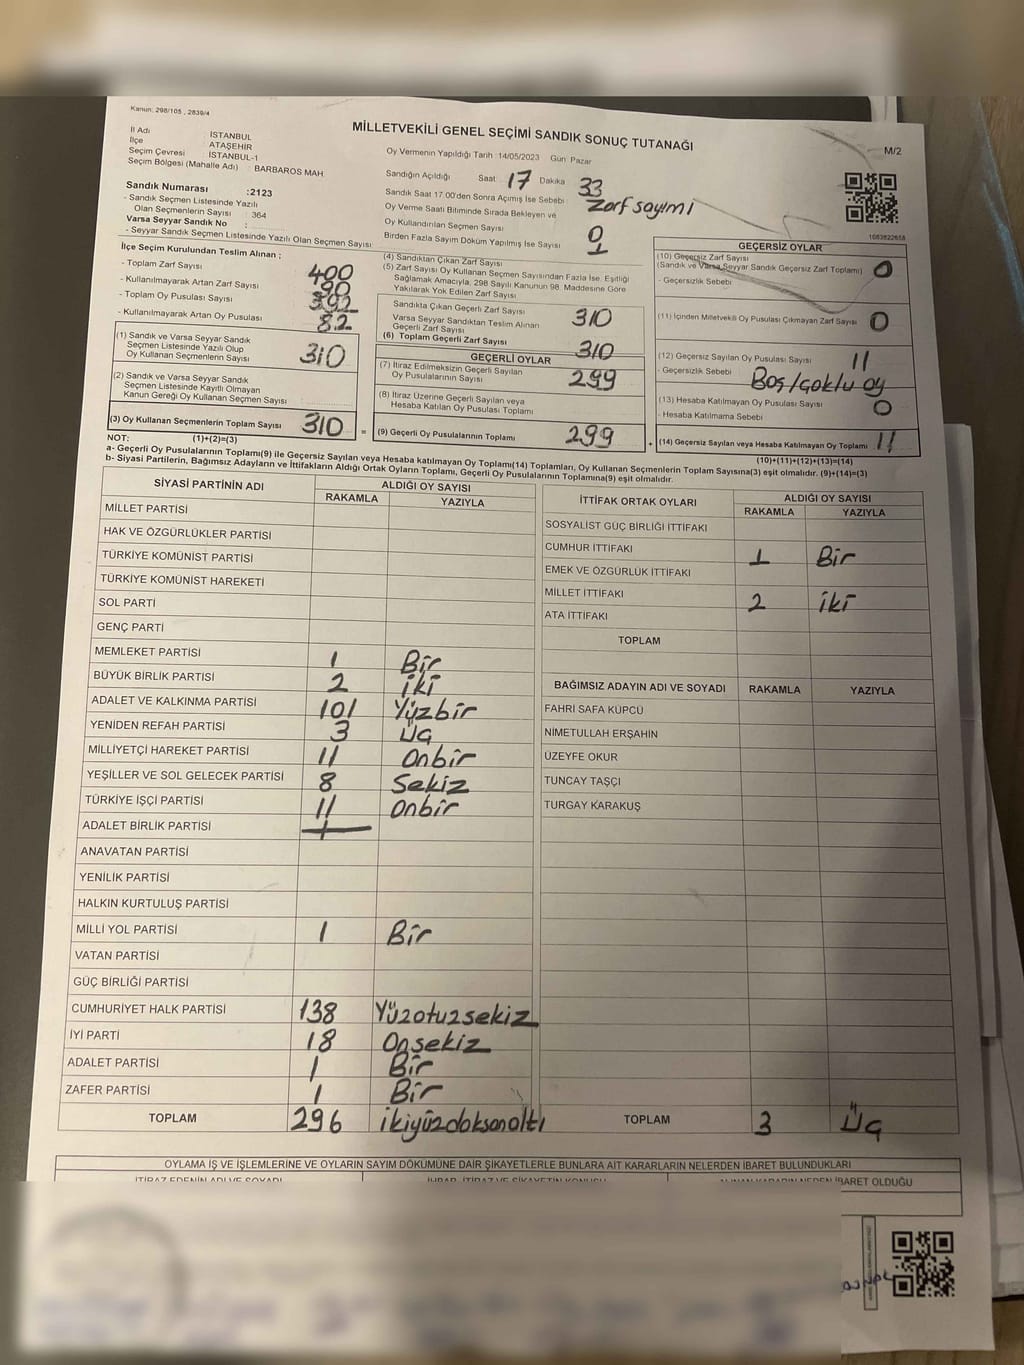 Kanun: 298/105 , 2839/4
MİLLETVEKİLİ GENEL SEÇİMİ SANDIK SONUÇ TUTANAĞI
M/2
İl Adı : İSTANBUL
İlçe : ATAŞEHİR
Seçim Çevresi : İSTANBUL-1
Seçim Bölgesi (Mahalle Adı) : BARBAROS MAH.
Sandık Numarası :2123
- Sandık Seçmen Listesinde Yazılı
Olan Seçmenlerin Sayısı : 364
Varsa Seyyar Sandık No :
- Seyyar Seçmen Listesinde Yazılı Olan Seçmen Sayısı :
Oy Vermenin Yapıldığı Tarih :14/05/2023 Gün Pazar
Sandığın Açıldığı Saat 17 Dakika 33
Sandık Saat 17.00'den Sonra Açımış İse Sebebi : Zarf sayımı
Oy Verme Saati Bitiminde Sırada Bekleyen ve
Oy Kullandırılan Seçmen Sayısı : 0
Birden Fazla Sayım Döküm Yapılmış İse Sayısı : 1
1083822658
İlçe Seçim Kurulundan Teslim Alınan ;
- Toplam Zarf Sayısı 400
- Kullanılmayarak Artan Zarf Sayısı 90
- Toplam Oy Pusulası Sayısı 392
- Kullanılmayarak Artan Oy Pusulası 82
(1) Sandık ve Varsa Seyyar Sandık
Seçmen Listesinde Yazılı Olup
Oy Kullanan Seçmenlerin Sayısı 310
(2) Sandık ve Varsa Seyyar Sandık
Seçmen Listesinde Kayıtlı Olmayan
Kanun Gereği Oy Kullanan Seçmen Sayısı
(3) Oy Kullanan Seçmenlerin Toplam Sayısı 310
(1)+(2)=(3)
(4) Sandıktan Çıkan Zarf Sayısı
(5) Zarf Sayısı Oy Kullanan Seçmen Sayısından Fazla İse, Eşitliği
Sağlamak Amacıyla, 298 Sayılı Kanunun 98. Maddesine Göre
Yakılarak Yok Edilen Zarf Sayısı
Sandıkta Çıkan Geçerli Zarf Sayısı 310
Varsa Seyyar Sandıktan Teslim Alınan
Geçerli Zarf Sayısı
(6) Toplam Geçerli Zarf Sayısı 310
GEÇERLİ OYLAR
(7) İtiraz Edilmeksizin Geçerli Sayılan
Oy Pusulalarının Sayısı 299
(8) İtiraz Üzerine Geçerli Sayılan veya
Hesaba Katılan Oy Pusulası Toplamı
= (9) Geçerli Oy Pusulalarının Toplamı 299
GEÇERSİZ OYLAR
(10) Geçersiz Zarf Sayısı
(Sandık ve Varsa Seyyar Sandık Geçersiz Zarf Toplamı) 0
- Geçersizlik Sebebi
(11) İçinden Milletvekili Oy Pusulası Çıkmayan Zarf Sayısı 0
(12) Geçersiz Sayılan Oy Pusulası Sayısı 11
- Geçersizlik Sebebi : Boş/Çoklu oy
(13) Hesaba Katılmayan Oy Pusulası Sayısı 0
- Hesaba Katılmama Sebebi
+ (14) Geçersiz Sayılan veya Hesaba Katılmayan Oy Toplamı 11
(10)+(11)+(12)+(13)=(14)
NOT:
a- Geçerli Oy Pusulalarının Toplamı(9) ile Geçersiz Sayılan veya Hesaba katılmayan Oy Toplamı(14) Toplamları, Oy Kullanan Seçmenlerin Toplam Sayısına(3) eşit olmalıdır. (9)+(14)=(3)
b- Siyasi Partilerin, Bağımsız Adayların ve İttifakların Aldığı Ortak Oyların Toplamı, Geçerli Oy Pusulalarının Toplamına(9) eşit olmalıdır.
SİYASİ PARTİNİN ADI ALDIĞI OY SAYISI
RAKAMLA YAZIYLA
MİLLET PARTİSİ
HAK VE ÖZGÜRLÜKLER PARTİSİ
TÜRKİYE KOMÜNİST PARTİSİ
TÜRKİYE KOMÜNİST HAREKETİ
SOL PARTİ
GENÇ PARTİ
MEMLEKET PARTİSİ 1 Bir
BÜYÜK BİRLİK PARTİSİ 2 iki
ADALET VE KALKINMA PARTİSİ 101 Yüzbir
YENİDEN REFAH PARTİSİ 3 Üç
MİLLİYETÇİ HAREKET PARTİSİ 11 Onbir
YEŞİLLER VE SOL GELECEK PARTİSİ 8 Sekiz
TÜRKİYE İŞÇİ PARTİSİ 11 Onbir
ADALET BİRLİK PARTİSİ
ANAVATAN PARTİSİ
YENİLİK PARTİSİ
HALKIN KURTULUŞ PARTİSİ
MİLLİ YOL PARTİSİ 1 Bir
VATAN PARTİSİ
GÜÇ BİRLİĞİ PARTİSİ
CUMHURİYET HALK PARTİSİ 138 Yüzotuzsekiz
İYİ PARTİ 18 Onsekiz
ADALET PARTİSİ 1 Bir
ZAFER PARTİSİ 1 Bir
TOPLAM 296 ikiyüzdoksanaltı
İTTİFAK ORTAK OYLARI ALDIĞI OY SAYISI
RAKAMLA YAZIYLA
SOSYALİST GÜÇ BİRLİĞİ İTTİFAKI
CUMHUR İTTİFAKI 1 Bir
EMEK VE ÖZGÜRLÜK İTTİFAKI
MİLLET İTTİFAKI 2 iki
ATA İTTİFAKI
TOPLAM
BAĞIMSIZ ADAYIN ADI VE SOYADI RAKAMLA YAZIYLA
FAHRİ SAFA KÜPCÜ
NİMETULLAH ERŞAHİN
ÜZEYFE OKUR
TUNCAY TAŞÇI
TURGAY KARAKUŞ
TOPLAM 3 Üç
OYLAMA İŞ VE İŞLEMLERİNE VE OYLARIN SAYIM DÖKÜMÜNE DAİR ŞİKAYETLERLE BUNLARA AİT KARARLARIN NELERDEN İBARET BULUNDUKLARI
İTİRAZ EDENİN ADI VE SOYADI İHBAR, İTİRAZ VE ŞİKAYETİN KONUSU ALINAN KARARIN NEDEN İBARET OLDUĞU